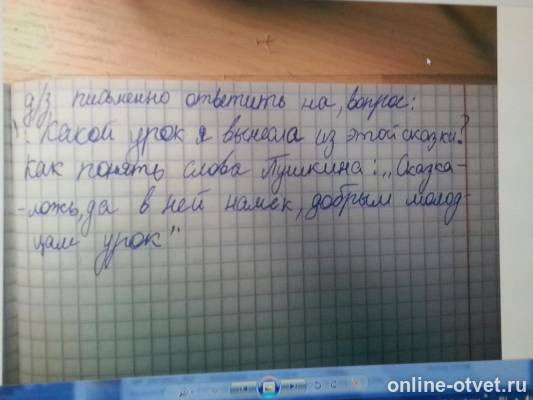 д/з письменно ответить на вопрос:
1. Какой урок я вынесла из этой сказки?
Как понять слова Пушкина: „Сказка-
-ложь, да в ней намек, добрым молод-
цам урок"
online-otvet.ru